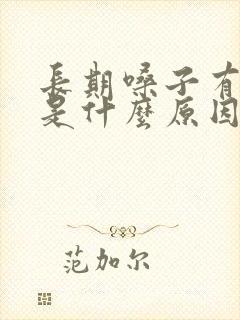 長期嗓子有
是什麼原因
范加尔